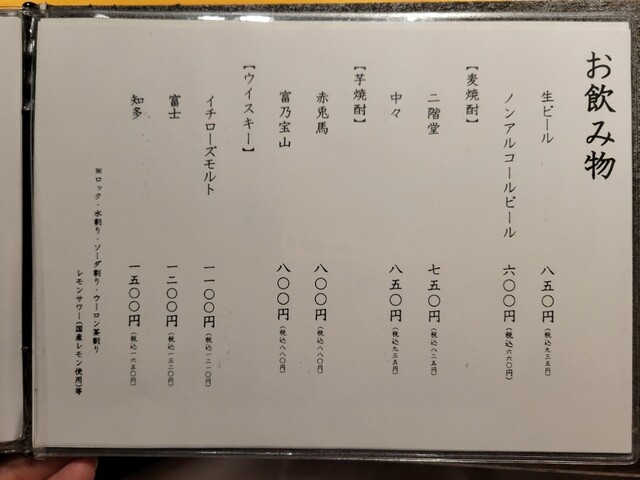 お飲み物
生ビール 八五〇円（税込九三五円）
ノンアルコールビール 六〇〇円（税込六六〇円）
【麦焼酎】
二階堂 七五〇円（税込八二五円）
中々 八五〇円（税込九三五円）
【芋焼酎】
赤兎馬 八〇〇円（税込八八〇円）
富乃宝山 八〇〇円（税込八八〇円）
【ウイスキー】
イチローズモルト 一一〇〇円（税込一二一〇円）
富士 一二〇〇円（税込一三二〇円）
知多 一五〇〇円（税込一六五〇円）
ロック・水割り・ソーダ割り・ウーロン茶割り
レモンサワー（国産レモン使用）等